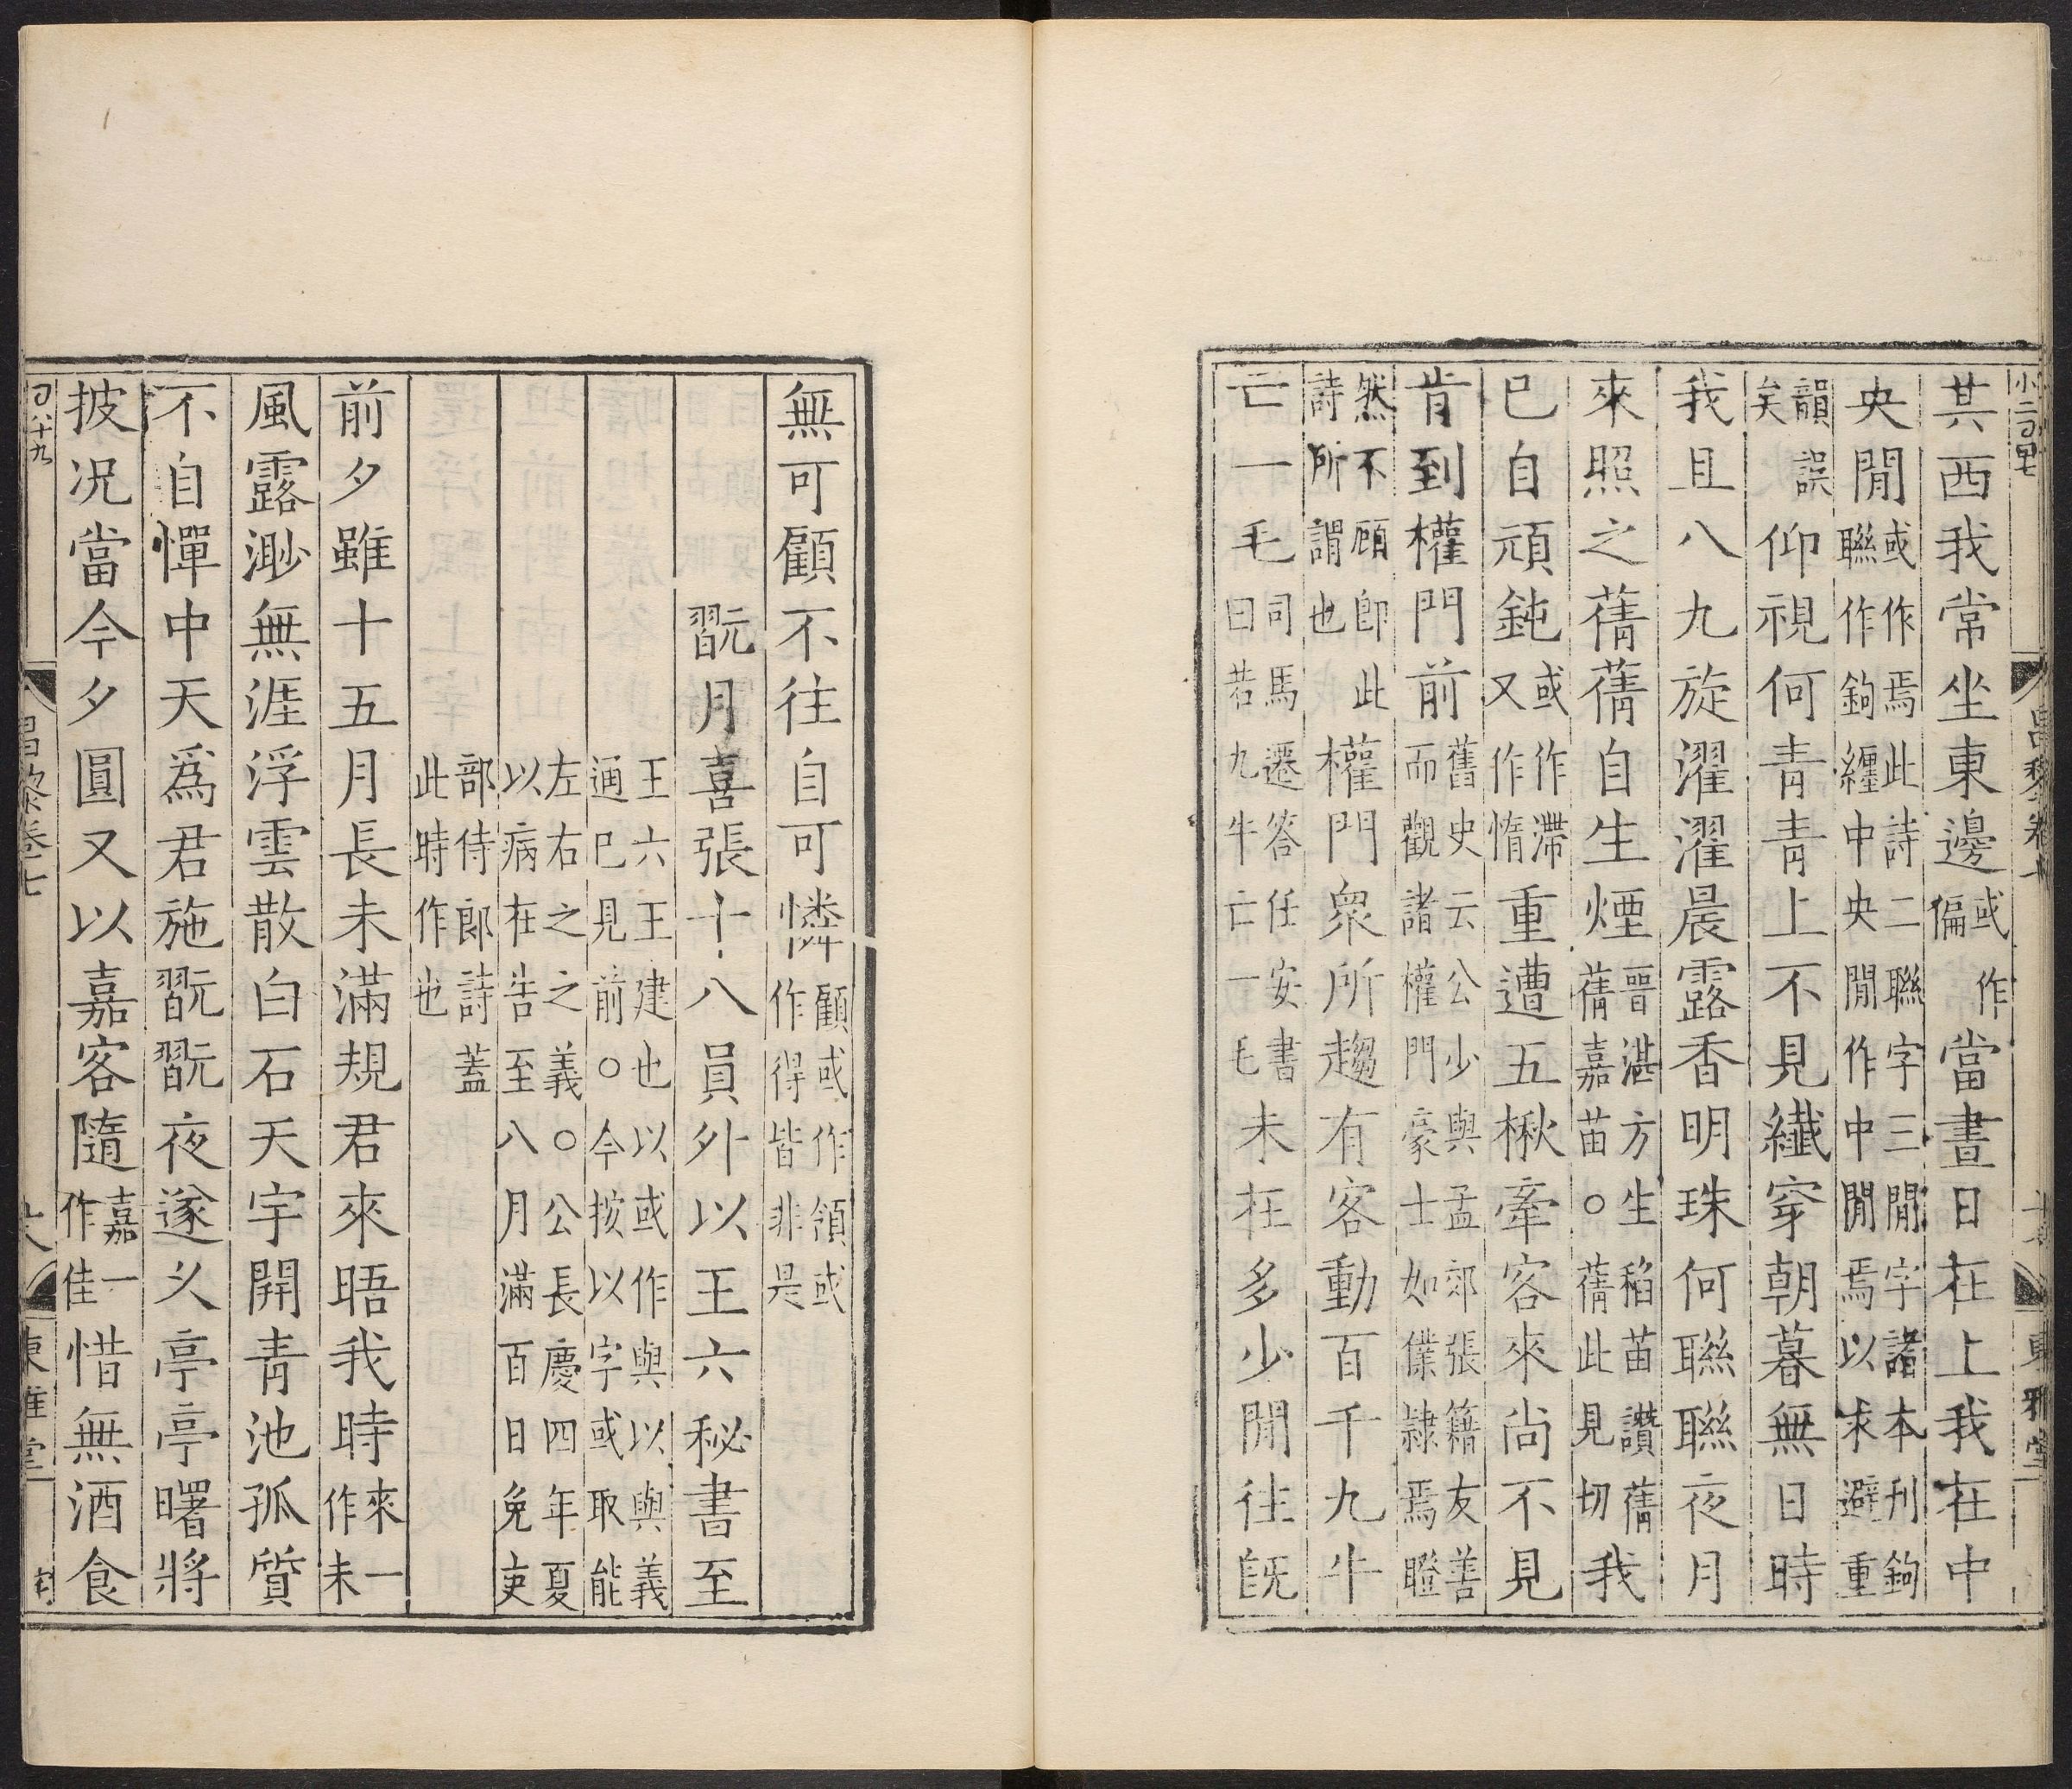 其西我常坐東邊或作偏當晝日在上我在中
央閒或作焉此詩二聯字三閒字諸本刊鉤聯作鉤纏中央閒作中閒焉以求避重
韻誤矣仰視何青青上不見纖穿朝暮無日時
我且八九旋濯濯晨露香明珠何聯聯夜月
來照之蒨蒨自生煙晋湛方生稻苗讚蒨蒨嘉苗○蒨此見切我
已自頑鈍或作滯又作惰重遭五楸牽客來尚不見
肯到權門前舊史云公少與孟郊張籍友善而觀諸權門豪士如僕隸焉瞪
然不顧即此詩所謂也權門衆所趨有客動百千九牛
亡一毛司馬遷答任安書曰若九牛亡一毛未在多少閒往旣
無可顧不往自可憐顧或作領或作得皆非是
翫月喜張十八員外以王六秘書至
王六王建也以或作與以與義通已見前○今按以字或取能
左右之之義○公長慶四年夏以病在告至八月滿百日免吏
部侍郎詩蓋此時作也
前夕雖十五月長未滿規君來晤我時來一作未
風露渺無涯浮雲散白石天宇開青池孤質
不自憚中天爲君施翫翫夜遂乆亭亭曙將
披况當今夕圓又以嘉客隨嘉一作佳惜無酒食
昌黎卷七
東雅堂